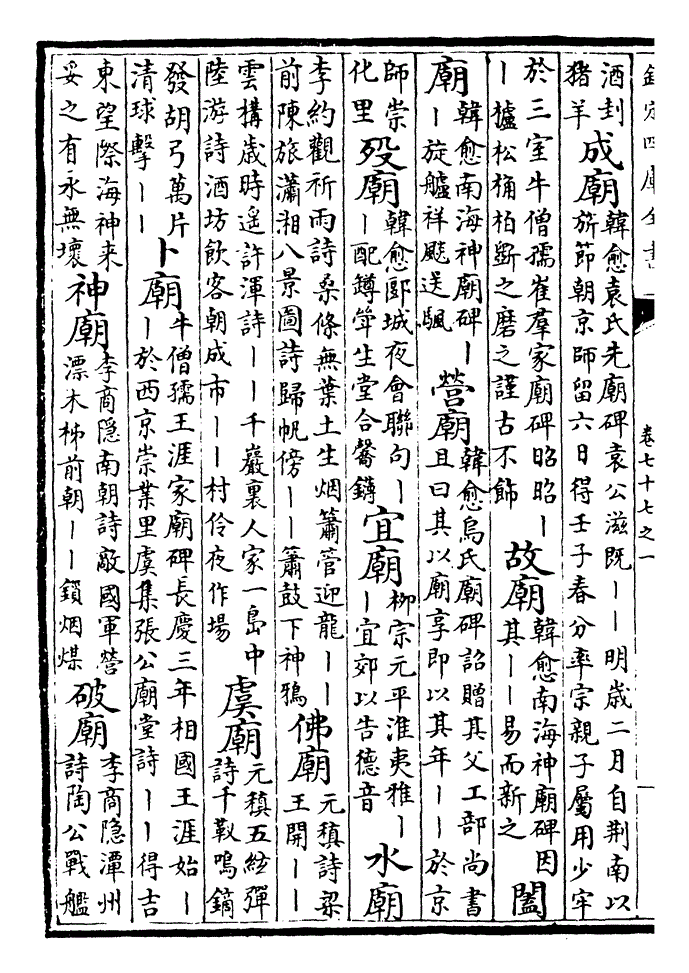 欽定四庫全書
卷七十七之一
酒刲
猪羊
成廟
韓愈袁氏先廟碑袁公滋既——明歲二月自荆南以
旂節朝京師留六日得壬子春分率宗親子屬用少牢
於三室牛僧孺崔羣家廟碑昭昭—
—櫨松桷柏斵之磨之謹古不飾
故廟
韓愈南海神廟碑因
其——易而新之
闔
廟
韓愈南海神廟碑—
—旋艫祥飈送颿
營廟
韓愈烏氏廟碑詔贈其父工部尚書
且曰其以廟享即以其年——於京
師崇
化里
歿廟
韓愈郾城夜會聯句—
—配罇斝生堂合馨
宜廟
柳宗元平淮夷雅—
—宜郊以告德音
水廟
李約觀祈雨詩桑條無葉土生烟簫管迎龍——
前陳旅瀟湘八景圖詩歸帆傍——簫鼓下神鴉
佛廟
元稹詩梁
王開——
雲構歲時遥許渾詩——千巖裏人家一島中
陸游詩酒坊飲客朝成市——村伶夜作場
虞廟
元稹五絃彈
詩千靫鳴鏑
發胡弓萬片
清球擊——
卜廟
牛僧孺王涯家廟碑長慶三年相國王涯始—
—於西京崇業里虞集張公廟堂詩——得吉
東望際海神来
妥之有永無壞
神廟
李商隐南朝詩敵國軍營
漂木柹前朝——鎖烟煤
破廟
李商隐潭州
詩陶公戰艦